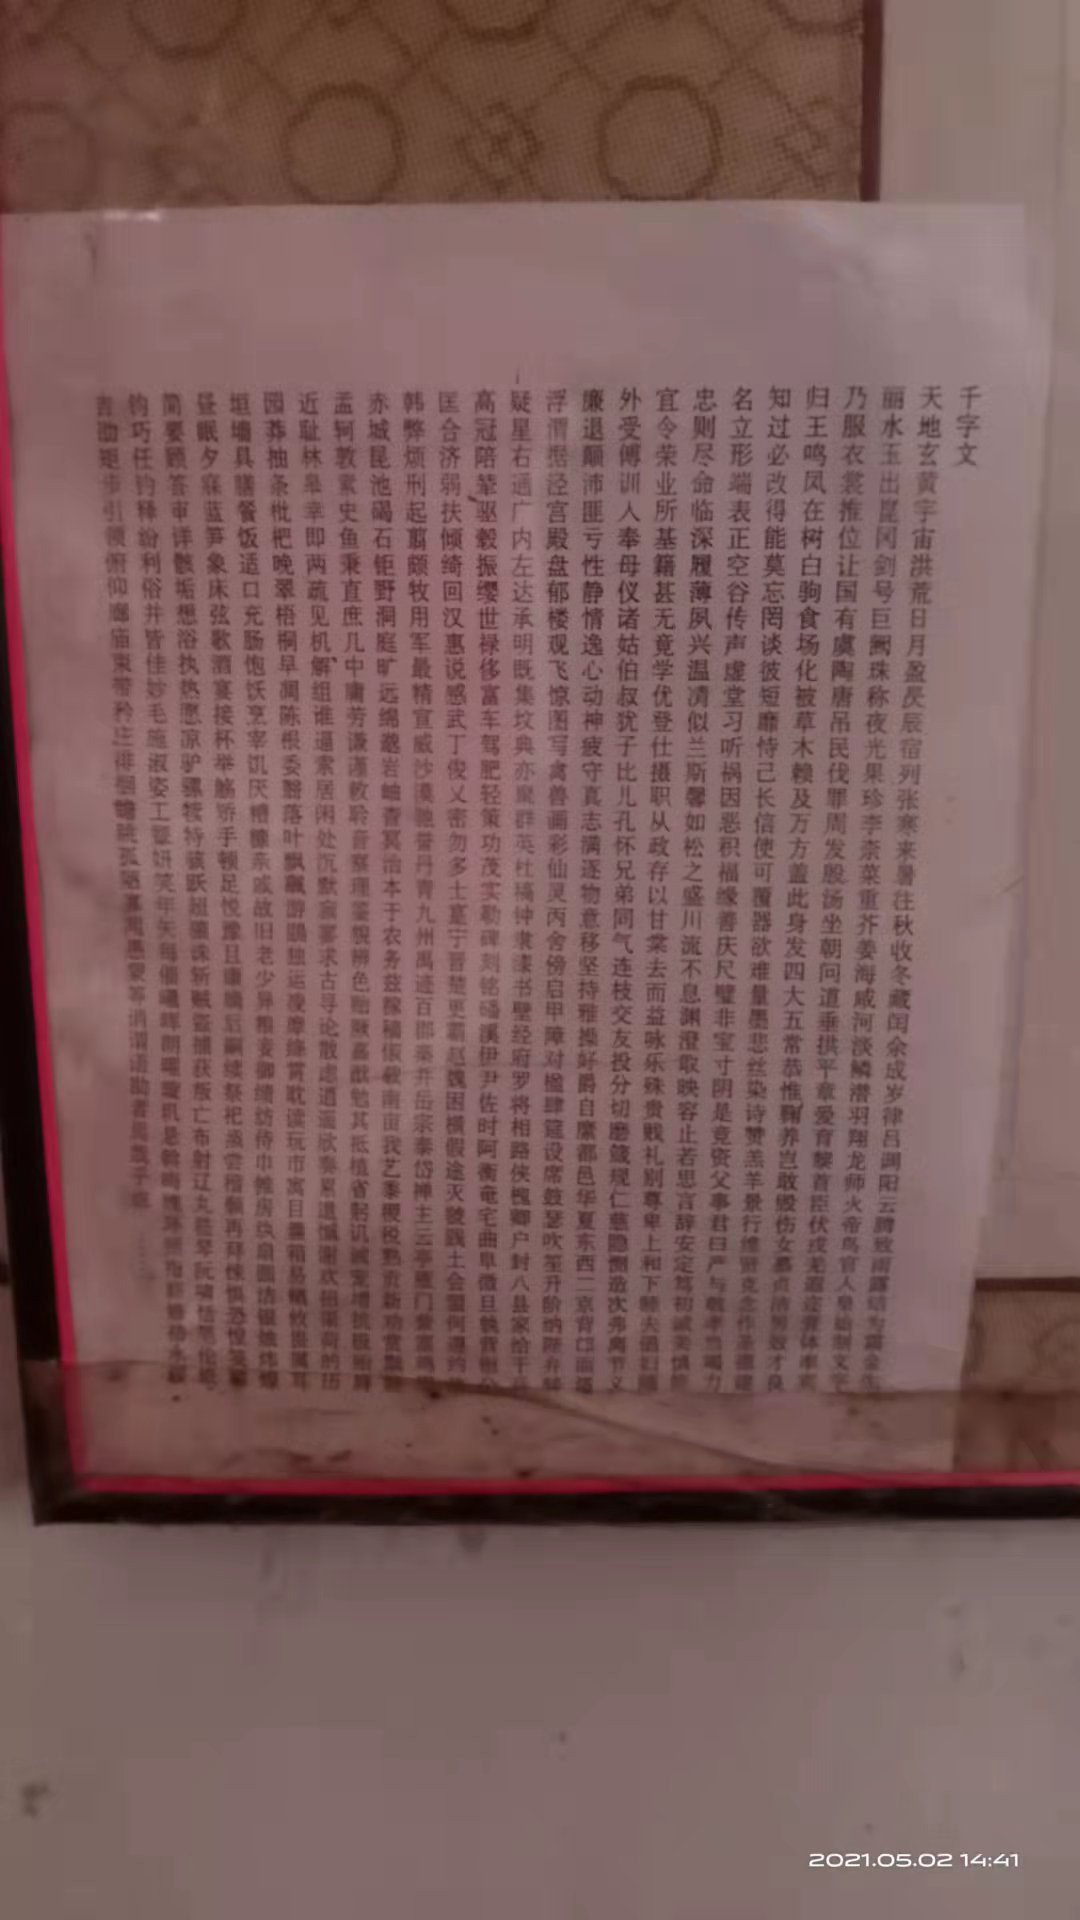 千字文
天地玄黄宇宙洪荒日月盈昃辰宿列张寒来暑往秋收冬藏闰余成岁律吕调阳云腾致雨露结为霜金生
丽水玉出昆冈剑号巨阙珠称夜光果珍李柰菜重芥姜海咸河淡鳞潜羽翔龙师火帝鸟官人皇始制文字
乃服衣裳推位让国有虞陶唐吊民伐罪周发殷汤坐朝问道垂拱平章爱育黎首臣伏戎羌遐迩壹体率宾
归王鸣凤在树白驹食场化被草木赖及万方盖此身发四大五常恭惟鞠养岂敢毁伤女慕贞洁男效才良
知过必改得能莫忘罔谈彼短靡恃己长信使可覆器欲难量墨悲丝染诗赞羔羊景行维贤克念作圣德建
名立形端表正空谷传声虚堂习听祸因恶积福缘善庆尺璧非宝寸阴是竞资父事君曰严与敬孝当竭力
忠则尽命临深履薄夙兴温清似兰斯馨如松之盛川流不息渊澄取映容止若思言辞安定笃初诚美慎终
宜令荣业所基籍甚无竟学优登仕摄职从政存以甘棠去而益咏乐殊贵贱礼别尊卑上和下睦夫唱妇随
外受傅训入奉母仪诸姑伯叔犹子比儿孔怀兄弟同气连枝交友投分切磨箴规仁慈隐恻造次弗离节义
廉退颠沛匪亏性静情逸心动神疲守真志满逐物意移坚持雅操好爵自縻都邑华夏东西二京背邙面洛
浮渭据泾宫殿盘郁楼观飞惊图写禽兽画彩仙灵丙舍傍启甲障对楹肆筵设席鼓瑟吹笙升阶纳陛弁转
疑星右通广内左达承明既集坟典亦聚群英杜稿钟隶漆书壁经府罗将相路侠槐卿户封八县家给千兵
高冠陪辇驱毂振缨世禄侈富车驾肥轻策功茂实勒碑刻铭磻溪伊尹佐时阿衡奄宅曲阜微旦孰营桓公
匡合济弱扶倾绮回汉惠说感武丁俊乂密勿多士寔宁晋楚更霸赵魏困横假途灭虢践土会盟何遵约法
韩弊烦刑起翦颇牧用军最精宣威沙漠驰誉丹青九州禹迹百郡秦并岳宗泰岱禅主云亭雁门紫塞鸡田
赤城昆池碣石钜野洞庭旷远绵邈岩岫杳冥治本于农务兹稼穑俶载南亩我艺黍稷税熟贡新劝赏黜陟
孟轲敦素史鱼秉直庶几中庸劳谦谨敕聆音察理鉴貌辨色贻厥嘉猷勉其祗植省躬讥诫宠增抗极殆辱
近耻林皋幸即两疏见机解组谁逼索居闲处沉默寂寥求古寻论散虑逍遥欣奏累遣戚谢欢招渠荷的历
园莽抽条枇杷晚翠梧桐早凋陈根委翳落叶飘飖游鹍独运凌摩绛霄耽读玩市寓目囊箱易輶攸畏属耳
垣墙具膳餐饭适口充肠饱饫烹宰饥厌糟糠亲戚故旧老少异粮妾御绩纺侍巾帷房纨扇圆洁银烛炜煌
昼眠夕寐蓝笋象床弦歌酒宴接杯举觞矫手顿足悦豫且康嫡后嗣续祭祀烝尝稽颡再拜悚惧恐惶笺牒
简要顾答审详骸垢想浴执热愿凉驴骡犊特骇跃超骧诛斩贼盗捕获叛亡布射辽丸嵇琴阮啸恬笔伦纸
钧巧任钓释纷利俗并皆佳妙毛施淑姿工颦妍笑年矢每催曦晖朗曜璇玑悬斡晦魄环照指薪修祜永绥
吉劭矩步引领俯仰廊庙束带矜庄徘徊瞻眺孤陋寡闻愚蒙等诮谓语助者焉哉乎也
2021.05.02 14:41